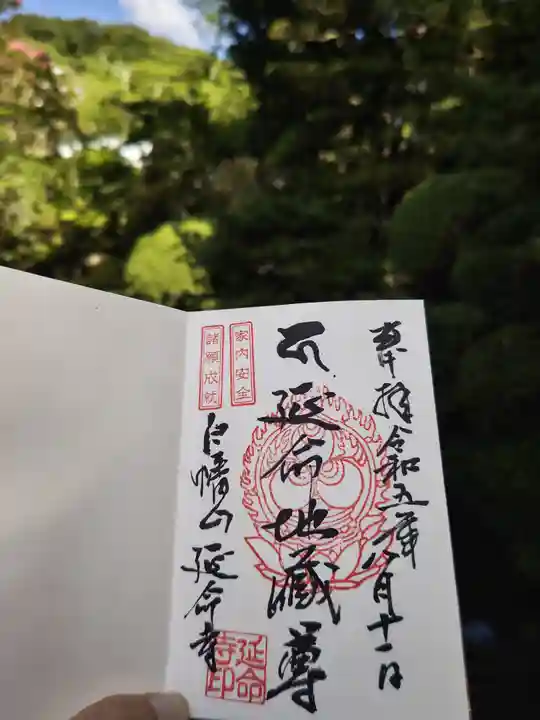 奉拝 令和五年八月十一日
延命地蔵尊
家内安全
諸願成就
白幡山 延命寺
延命
寺印